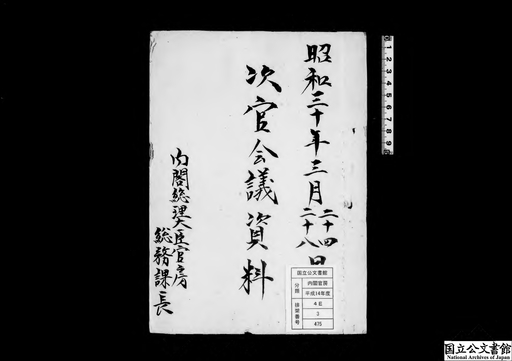 昭和三十年三月二十四日
二十八
次官会議資料
内閣総理大臣官房
総務課長
国立公文書館
分類
内閣官房
平成14年度
排架番号
4E
3
475
国立公文書館
National Archives of Japan